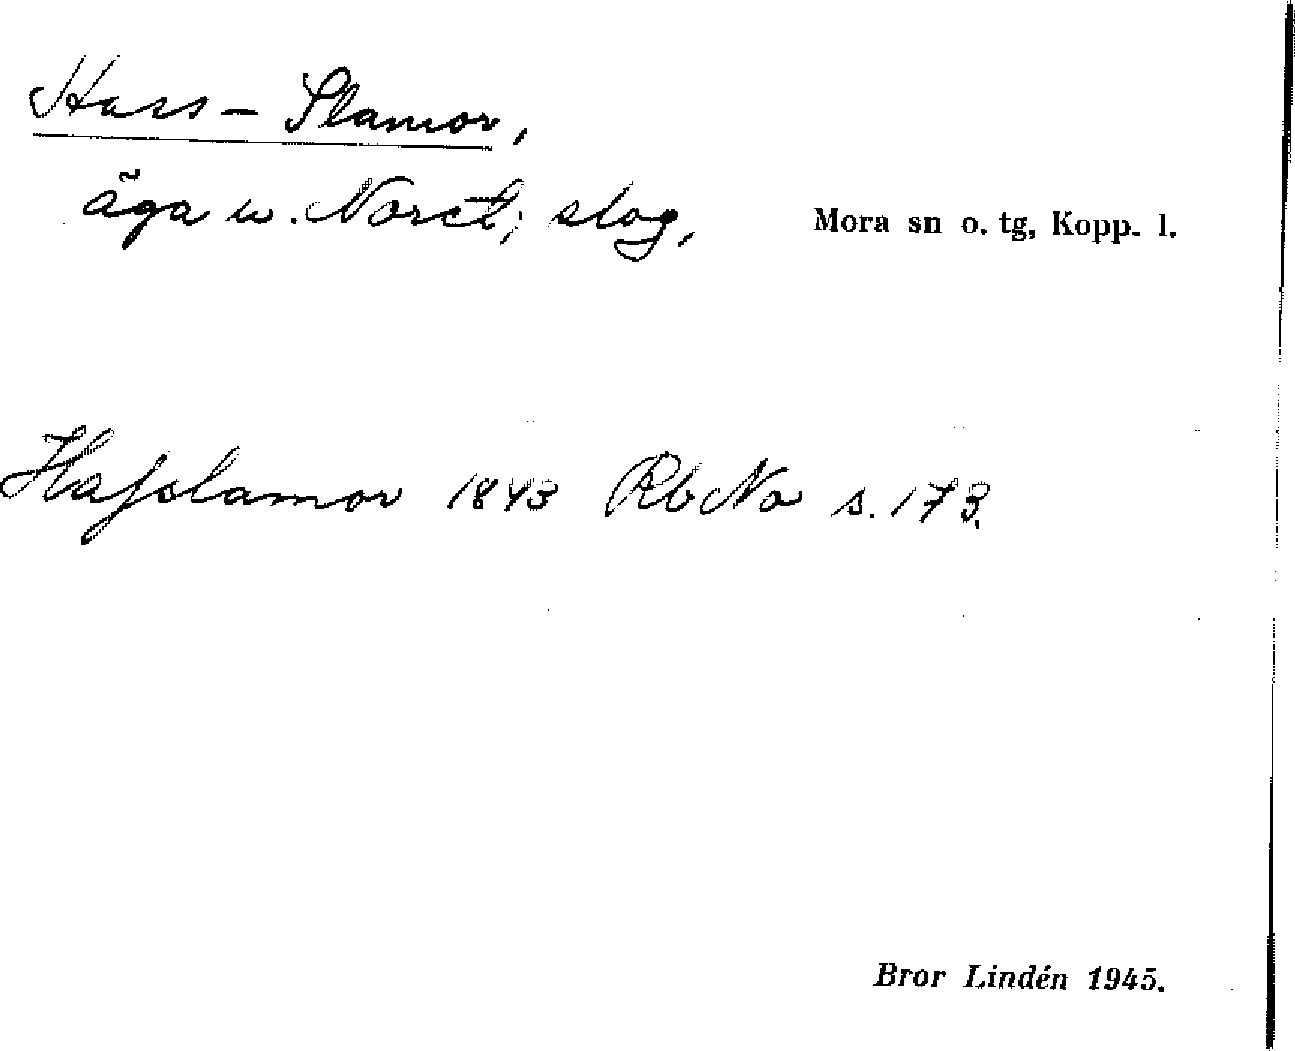 Hass-Slamor,
äga u. Noret; slog,
Mora sn o. tg, Kopp. l.
Hasslamor 1843 Rb No s. 173.
Bror Lindén 1945.